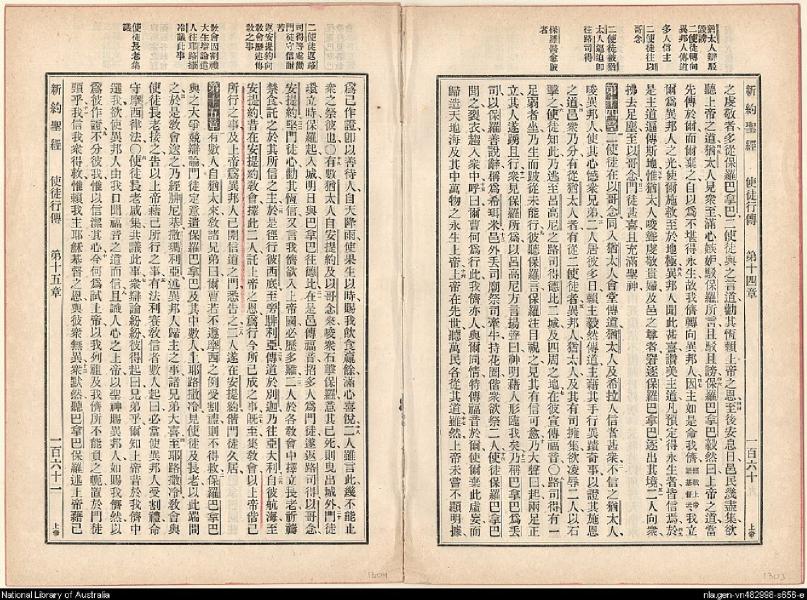 新約聖經 使徒行傳 第十四章 一百六十 上帝
之虔敬者多從保羅巴拿巴二使徒與之言道勸其恆賴上帝之恩至後安息日邑民幾盡集欲
聽上帝之道猶太人見衆至滿心嫉妒駁保羅所言且駁且謗保羅巴拿巴毅然曰上帝之道當
先傳於爾而爾棄之自以爲不堪得永生故我儕轉向異邦人因主如是命我儕我立
爾爲異邦人之光使爾施救至於地極異邦人聞此甚喜讚美主道凡預定得永生者皆信焉於
是主道遍傳斯地惟猶太人唆聳虔敬貴婦及邑之尊者窘逐保羅巴拿巴逐出其境二人向衆
拂去足塵至以哥念門徒甚喜且充滿聖神
第十四章二使徒在以哥念同入猶太人會堂傳道猶太人及希拉人信者甚衆不信之猶太人
唆異邦人使其心憾衆兄弟二人居彼多日賴主毅然傳道主藉其手行異蹟奇事以證其施恩
之道邑衆乃分有從猶太人者有從二使徒者異邦人猶太人及其有司擁集欲凌辱二人以石
擊之使徒知此乃逃至呂高尼之路司得德比二城及四周之地在彼宣傳福音○路司得有一
足弱者坐乃生而跛從未能行彼聽保羅言保羅注目視之見其有信可愈乃大聲曰起兩足正
立其人遂踴且行衆見保羅所爲以呂高尼方言揚聲曰神明藉人形臨我矣乃稱巴拿巴爲丟
司以保羅善說辭稱爲希耳米邑外丟司廟祭司牽牛持花圈偕衆欲祭二人使徒保羅巴拿巴
聞之裂衣趨入衆中呼曰爾曹何爲行此我儕亦人與爾同情特傳福音於爾使爾棄此虛妄而
歸造天地海及其中萬物之永生上帝上帝在先世聽萬民各從其道雖然上帝未嘗不顯明據
爲己作證卽以善待人自天降雨使果生以時賜我飲食靈餘滿心喜悅二人雖言此幾不能止
衆之祭彼也○有數猶太人自安提約及以哥念來唆衆石擊保羅意其已死則曳出城外門徒
環立時保羅起入城明日與巴拿巴往德比在是邑傳福音招多人爲門徒遂返路司得以哥念
安提約堅門徒心勸其恆信又言我儕欲入上帝國必歷多難二人於各教會中擇立長老祈禱
禁食託之於其所信之主於是徑行彼西底至旁腓利亞傳道於別迦乃往亞大利自彼航海至
安提約昔在安提約教會擇此二人託上帝之恩爲行今所已成之事旣至集教會以上帝偕己
所行之事及上帝爲異邦人已開信道之門悉告之二人遂在安提約偕門徒久居
第十五章有數人自猶太來教諸兄弟曰爾曹若不遵摩西之例受割禮則不得救保羅巴拿巴
與之大爭競辯論門徒定意遣保羅巴拿巴及其中數人上耶路撒冷見使徒及長老以此端問
之於是教會送之乃經腓尼基撒瑪利亞述異邦人歸主之事諸兄弟大喜至耶路撒冷教會與
使徒長老接之告以上帝藉己所行之事有法利賽教信者數人起曰必當使異邦人受割禮命
守摩西律法○使徒長老咸集共議此事衆辯論紛紛彼得起曰兄弟乎爾知上帝昔於我儕中
選我欲使異邦人由我口聞福音之道而信且識人心之上帝以聖神賜異邦人如賜我儕然以
爲彼作證不分彼我惟以信潔其心今何爲試上帝以我列祖及我儕所不能負之軛置於門徒
頸乎我信我衆得救惟賴我主耶穌基督之恩與彼衆無異衆默然聽巴拿巴保羅述上帝藉己
新約聖經 使徒行傳 第十五章 一百六十一 上帝
National Library of Australia
nla.gen-vn482998-s656-e